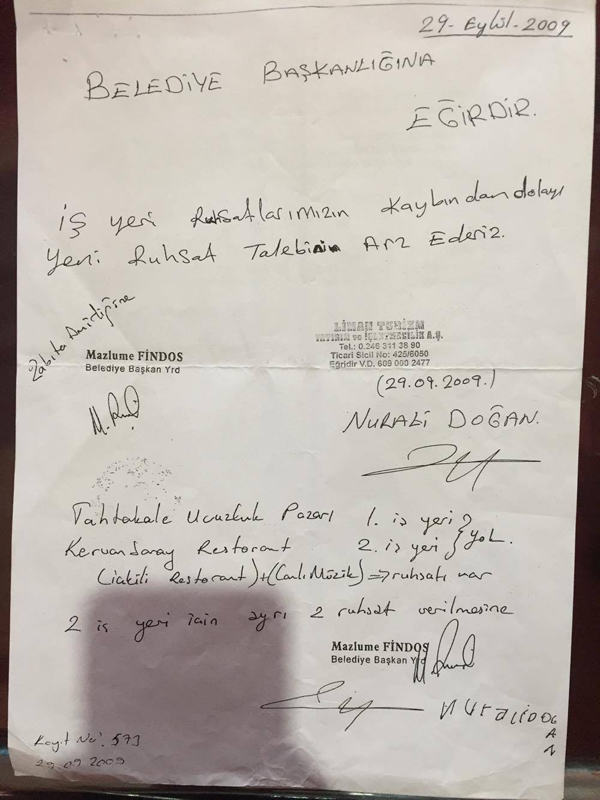 29-Eylül-2009
BELEDİYE BAŞKANLIĞINA
EĞİRDİR.
İŞ yeri Ruhsatlarımızın Kaybından dolayı
Yeni Ruhsat Talebinin Arz Ederiz.
Zabıta Amirliğine
Mazlume FİNDOS
Belediye Başkan Yrd
LİMAN TURİZM
YATIRIM ve İŞLETMECİLİK A.Ş.
Tel.: 0.246 311 38 90
Ticari Sicil No: 425/6050
Eğirdir V.D. 609 000 2477
(29.09.2009.)
NURALİ DOĞAN.
Tahtakale Ucuzluk Pazarı 1. iş yeri } yok.
Kervansaray Restorant 2. iş yeri
(içkili Restorant)+(Canlı Müzik) => ruhsatı var
2 iş yeri için ayrı 2 ruhsat verilmesine
Mazlume FİNDOS
Belediye Başkan Yrd
Nurali DOĞAN
Kayıt No: 573
29.09.2009